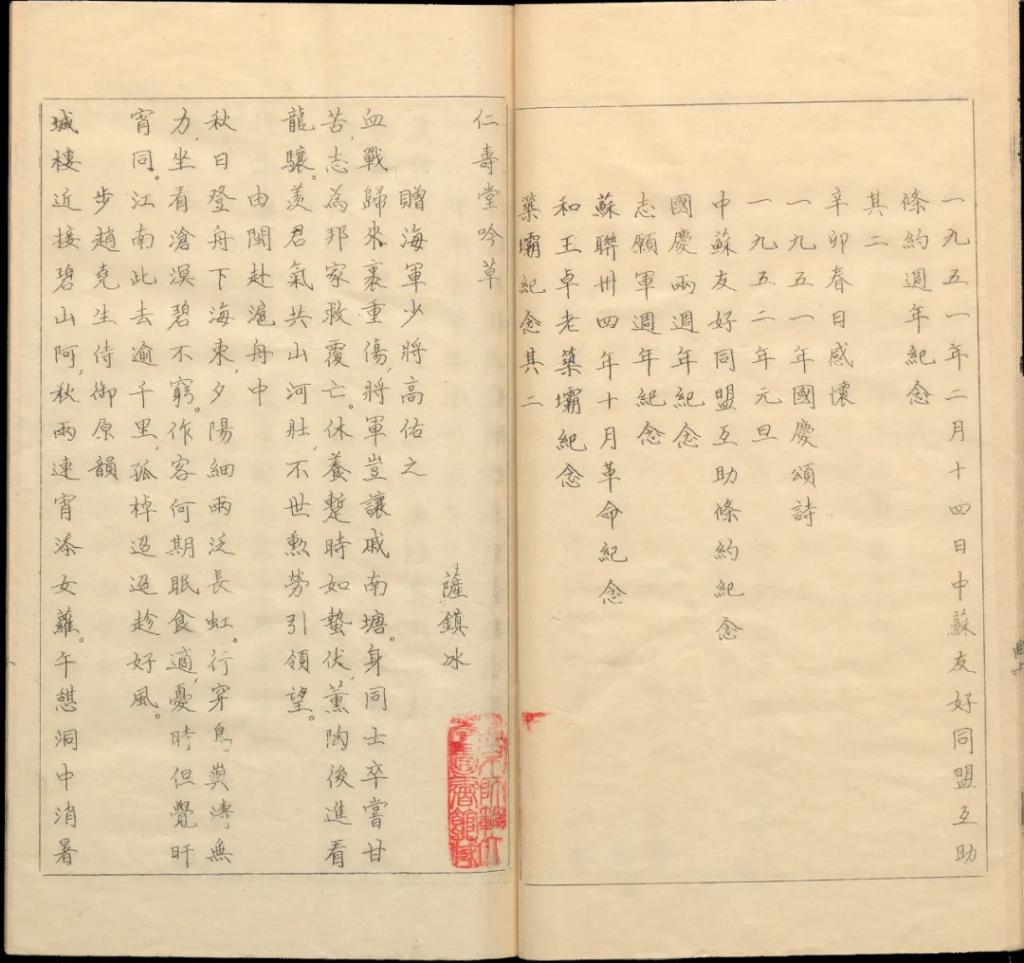 一九五一年二月十四日中蘇友好同盟互助
條約週年紀念
其二
辛卯春日感懷
一九五一年國慶頌詩
一九五二年元旦
中蘇友好同盟互助條約紀念
國慶兩週年紀念
志願軍週年紀念
蘇聯卅四年十月革命紀念
和王卓老築壩紀念
築壩紀念其二
仁壽堂吟草
薩鎮冰
贈海軍少將高佑之
血戰歸來裹重傷，將軍豈讓戚南塘。身同士卒嘗甘
苦，志為邦家救覆亡。休養蹔時如蟄伏，薰陶後進看
龍驤。羨君氣共山河壯，不世勲勞引領望。
由閩赴滬舟中
秋日登舟下海東，夕陽細雨泛長虹。行穿島嶼濤無
力，坐看滄溟碧不窮。作客何期眠食適，憂時但覺旰
宵同。江南此去逾千里，孤棹迢迢趁好風。
步趙堯生侍御原韻
城樓近接碧山阿，秋雨連宵添女蘿。午憇洞中消暑